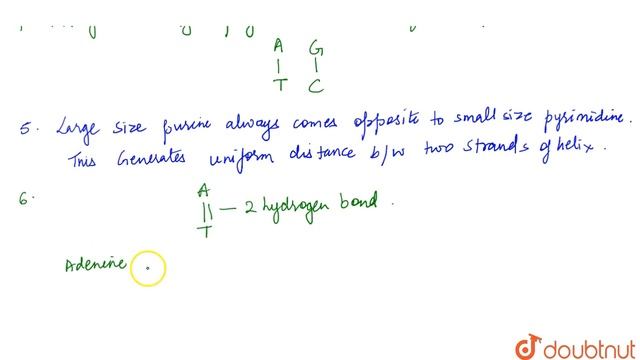 A G
T C
5. Large size purine always comes opposite to small size pyrimidine.
This Generates uniform distance b/w two strands of helix.
6.
A
— 2 hydrogen bond.
T
Adenine
doubtnut